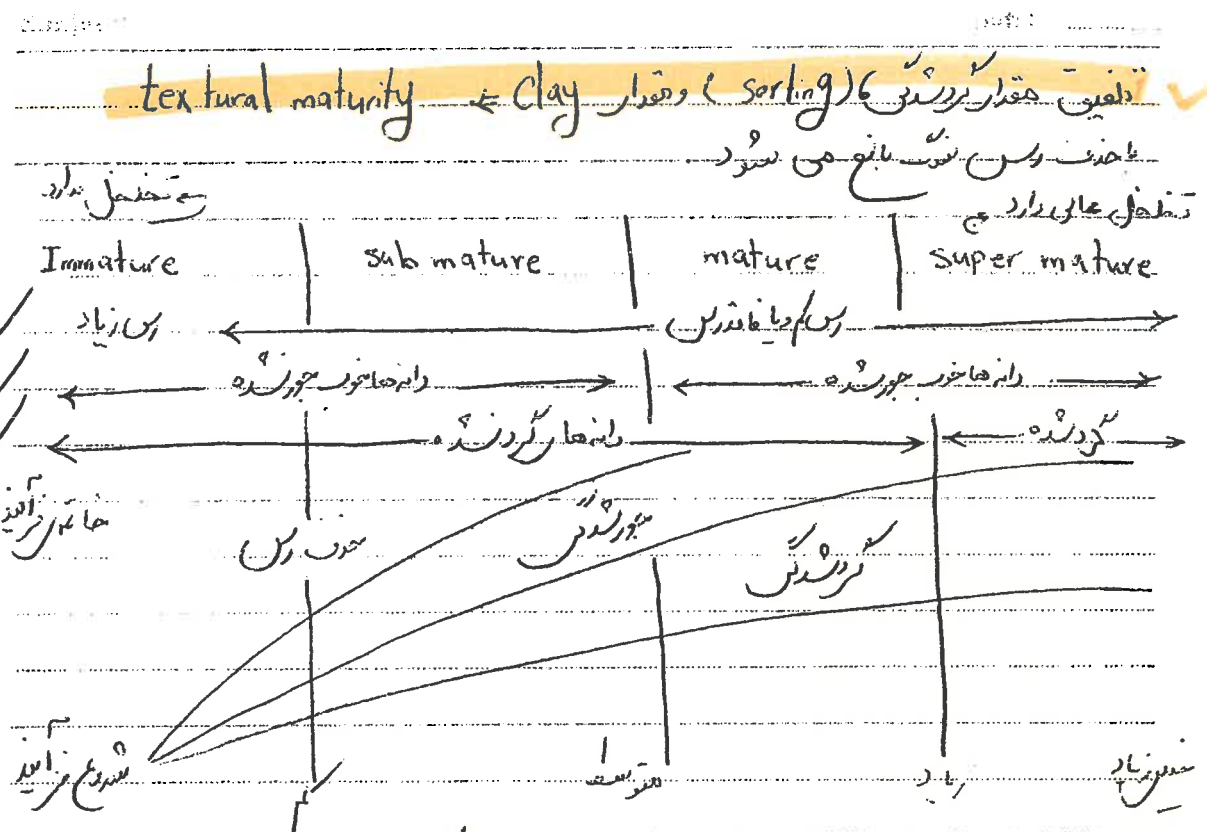 تلفیق مقدار گردشدگی، (sorting) و مقدار Clay ← textural maturity
با حذف رس سنگ بالغ می شود
تخلخل عالی دارد
تخلخل ندارد
Immature sub mature mature super mature
رس زیاد رس کم و یا فاقد رس
دانه ها خوب جور نشده دانه ها خوب جور شده
دانه های گرد نشده گرد شده
خاتمه فرآیند
حذف رس جورشدگی گردشدگی
شروع فرآیند کم متوسط زیاد خیلی زیاد